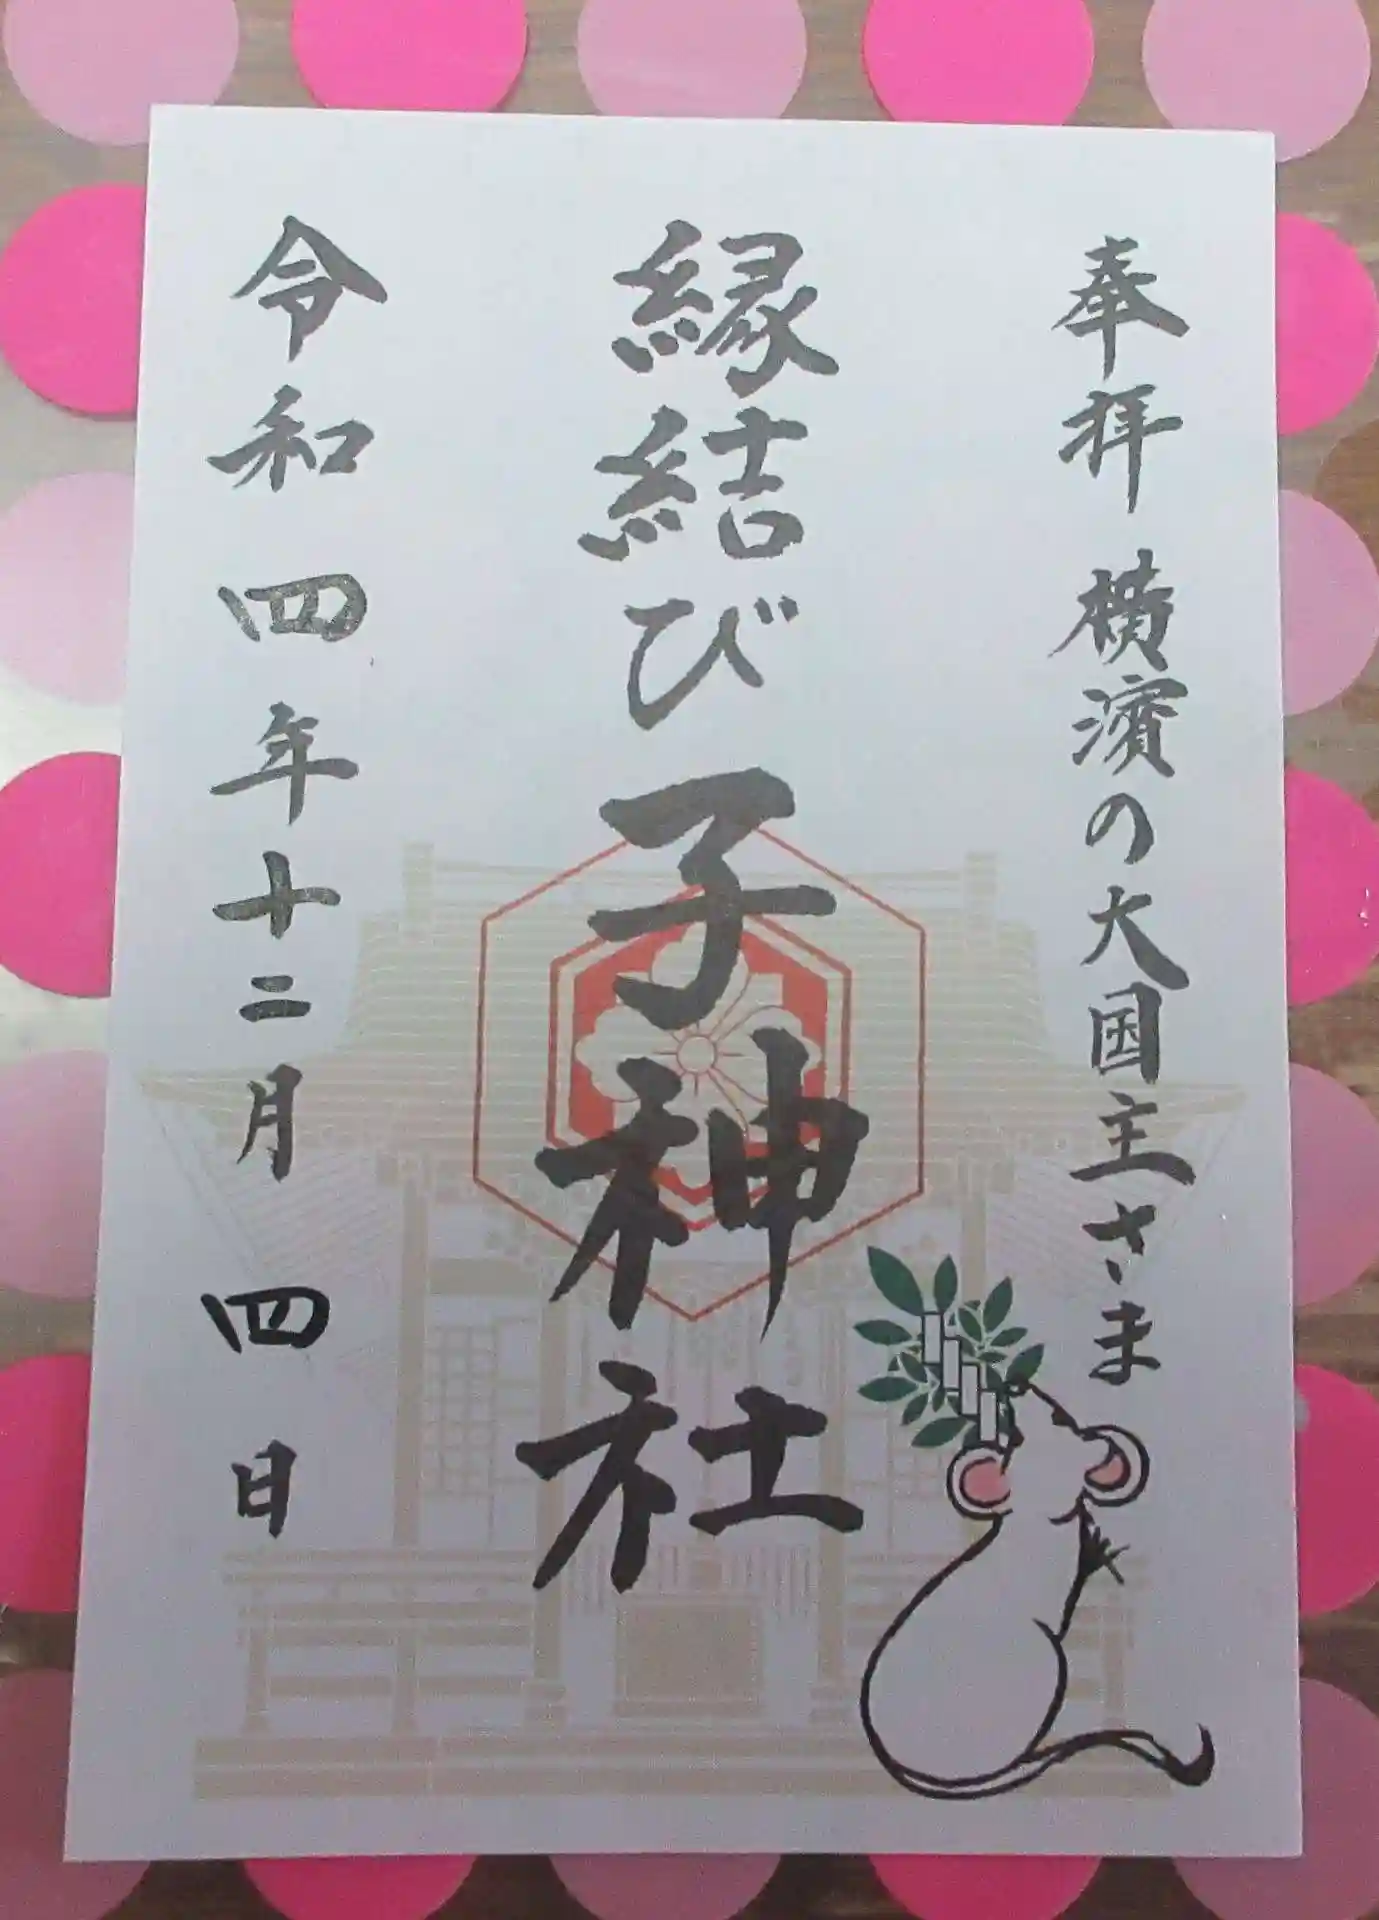 奉拝 横濱の大国主さま
縁結び 子神社
令和四年十二月 四日